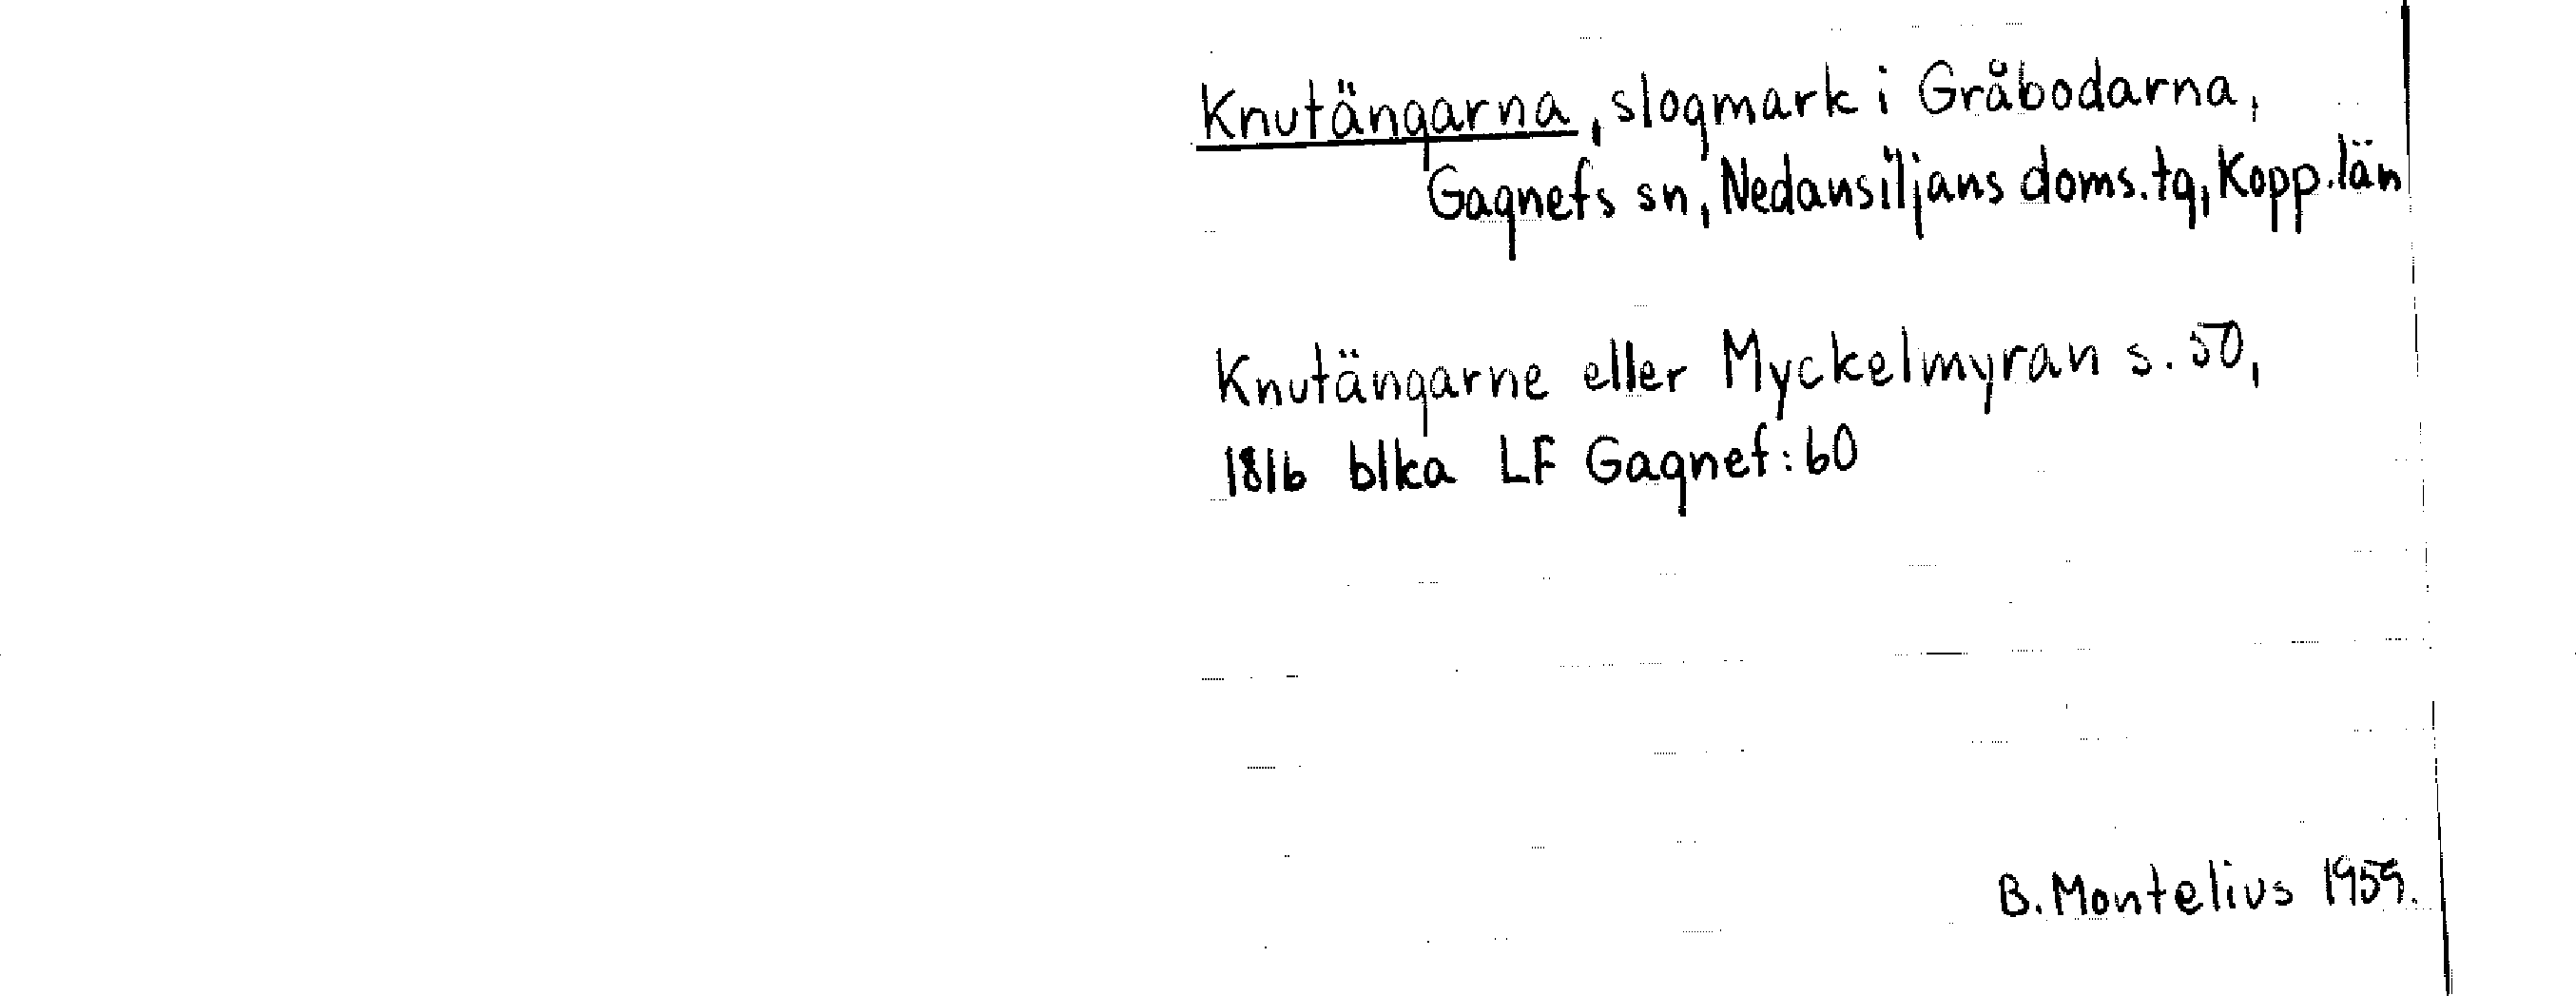 Knutängarna, slogmark i Gråbodarna,
Gagnefs sn, Nedansiljans doms.tg, Kopp.län
Knutängarne eller Myckelmyran s. 50,
1816 blka LF Gagnef:60
B. Montelius 1959.